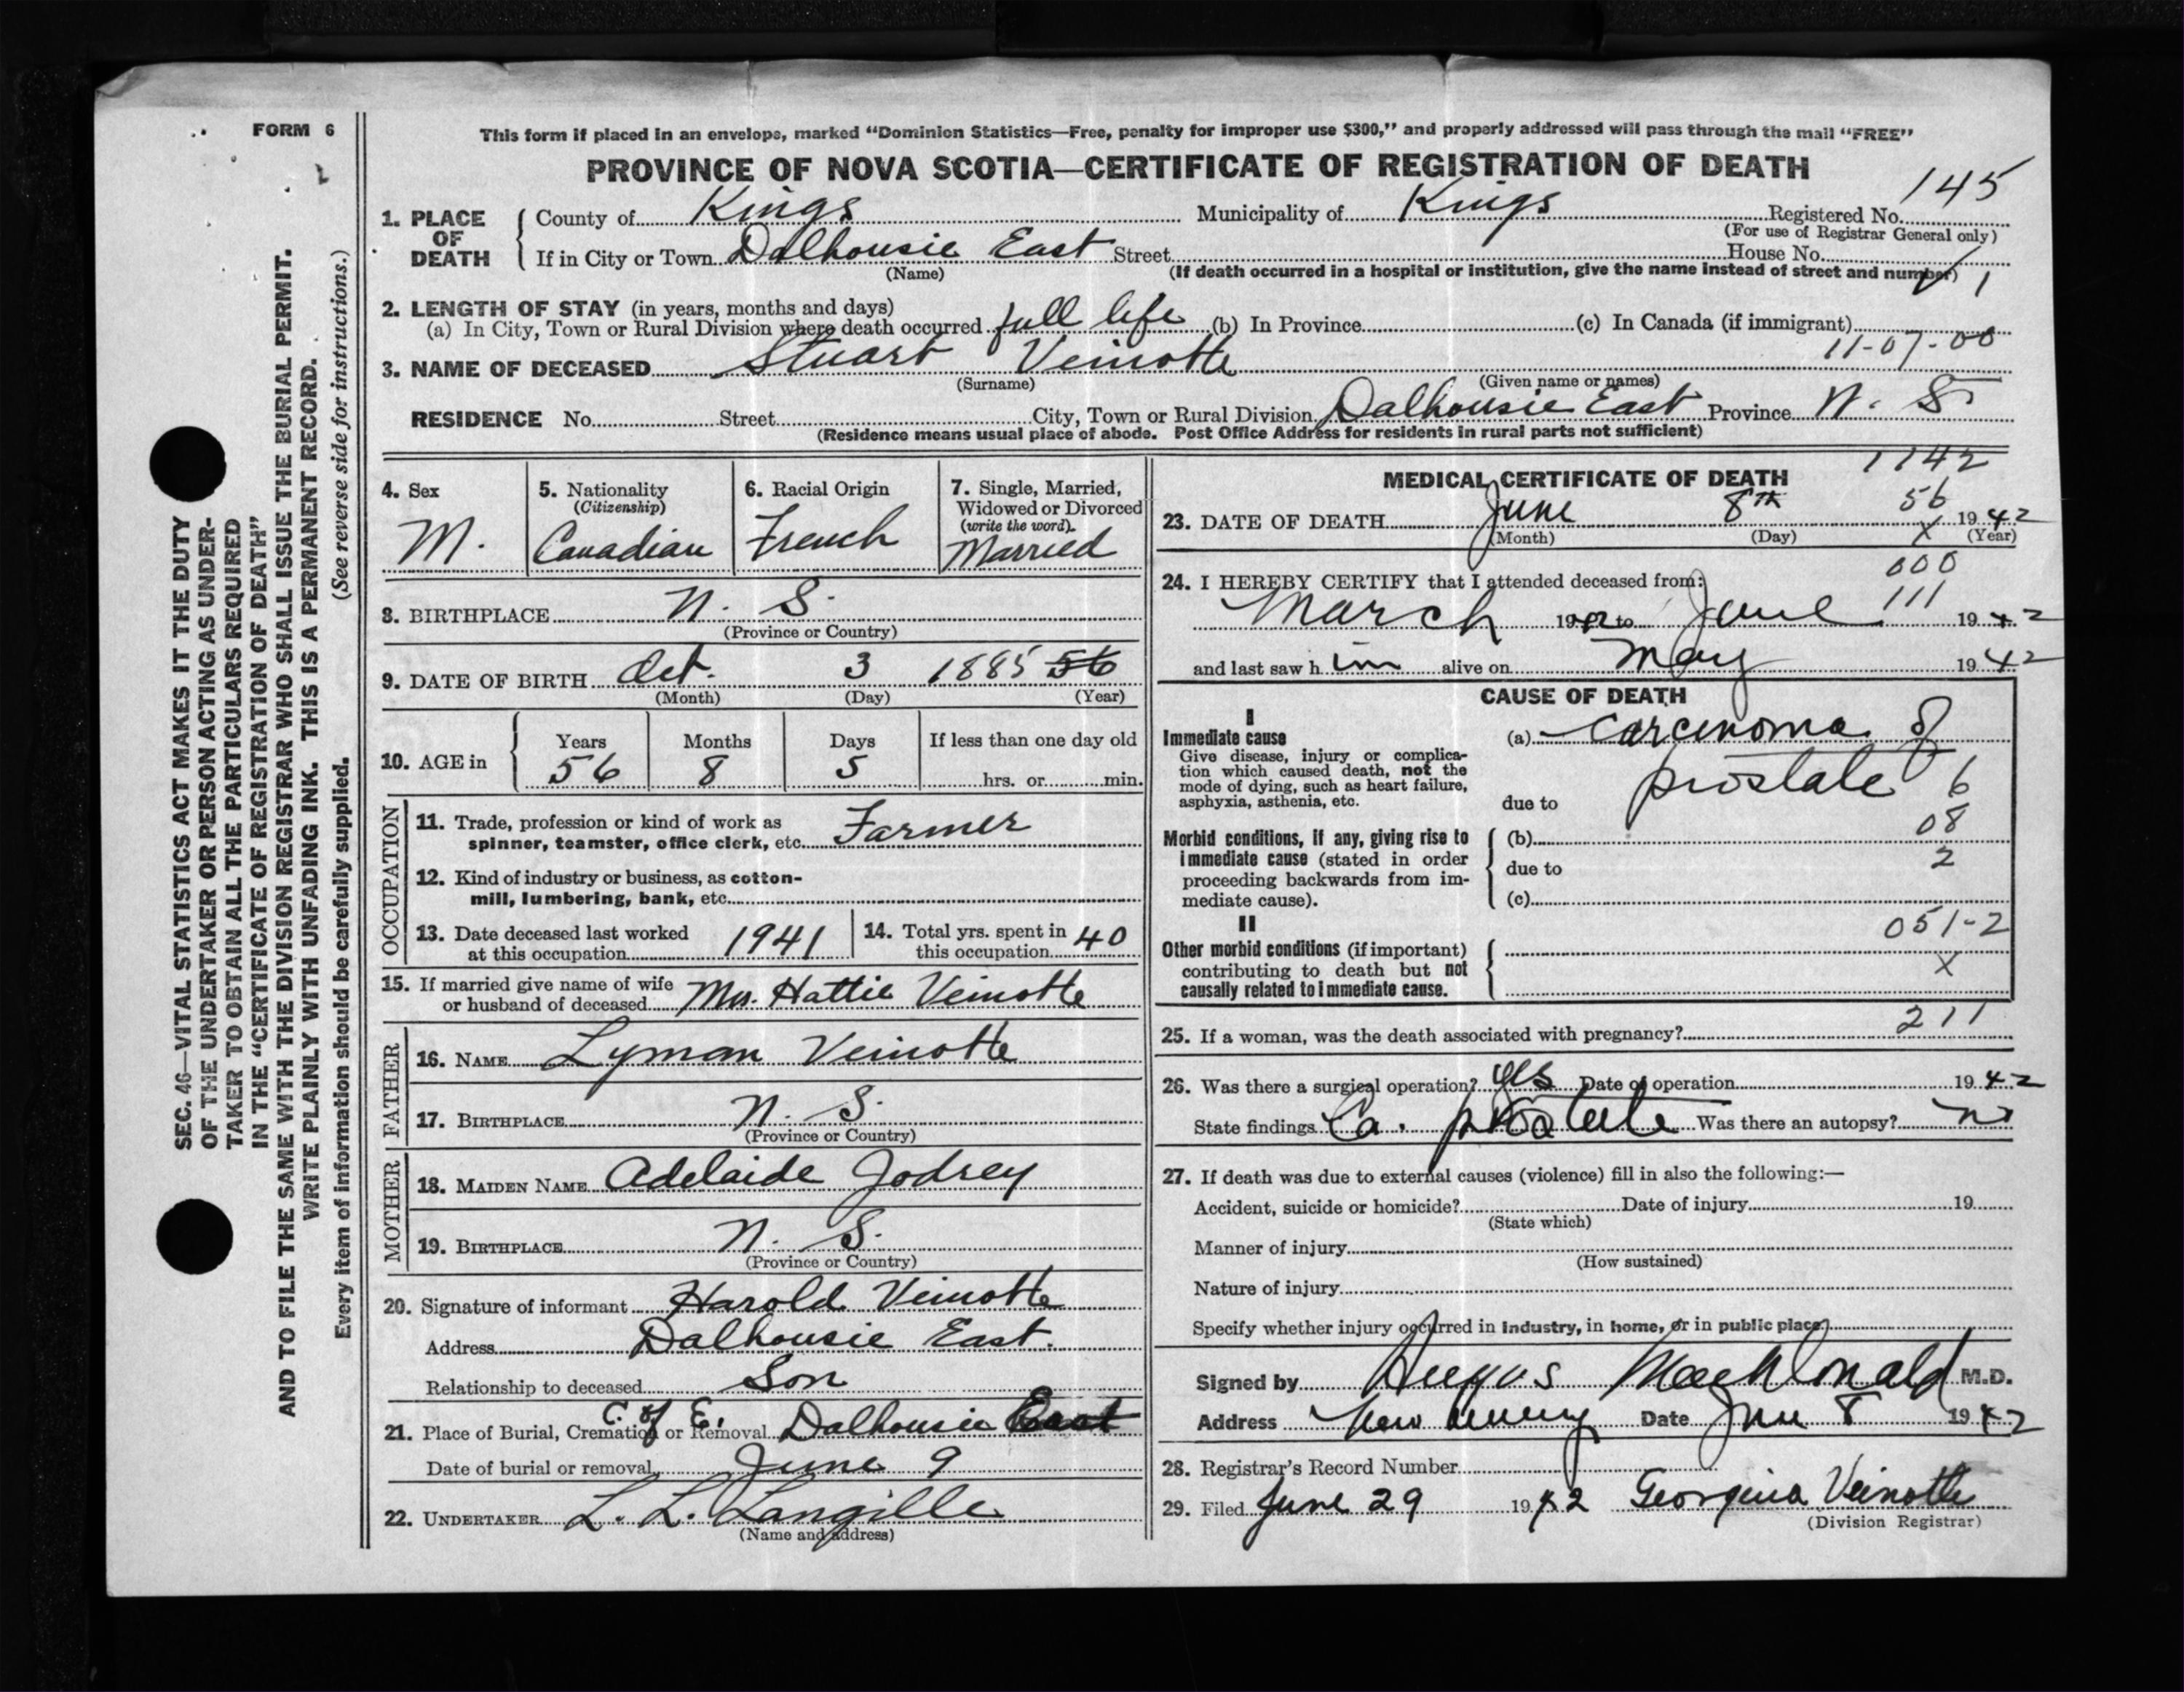 FORM 6
SEC. 46—VITAL STATISTICS ACT MAKES IT THE DUTY
OF THE UNDERTAKER OR PERSON ACTING AS UNDER-
TAKER TO OBTAIN ALL THE PARTICULARS REQUIRED
IN THE "CERTIFICATE OF REGISTRATION OF DEATH"
AND TO FILE THE SAME WITH THE DIVISION REGISTRAR WHO SHALL ISSUE THE BURIAL PERMIT.
WRITE PLAINLY WITH UNFADING INK. THIS IS A PERMANENT RECORD.
Every item of information should be carefully supplied. (See reverse side for instructions.)
This form if placed in an envelope, marked "Dominion Statistics—Free, penalty for improper use $300," and properly addressed will pass through the mail "FREE"
PROVINCE OF NOVA SCOTIA—CERTIFICATE OF REGISTRATION OF DEATH
145
1. PLACE OF DEATH
County of Kings Municipality of Kings Registered No.
(For use of Registrar General only)
If in City or Town Dalhousie East Street House No.
(Name) (If death occurred in a hospital or institution, give the name instead of street and number)
2. LENGTH OF STAY (in years, months and days)
(a) In City, Town or Rural Division where death occurred full life (b) In Province (c) In Canada (if immigrant)
11-07-00
3. NAME OF DECEASED Stuart Veinotte
(Surname) (Given name or names)
RESIDENCE No. Street City, Town or Rural Division Dalhousie East Province N. S.
(Residence means usual place of abode. Post Office Address for residents in rural parts not sufficient)
4. Sex
M.
5. Nationality
(Citizenship)
Canadian
6. Racial Origin
French
7. Single, Married,
Widowed or Divorced
(write the word)
Married
8. BIRTHPLACE N. S.
(Province or Country)
9. DATE OF BIRTH Oct. 3 1885 56
(Month) (Day) (Year)
10. AGE in
Years Months Days If less than one day old
56 8 5 hrs. or min.
OCCUPATION
11. Trade, profession or kind of work as
spinner, teamster, office clerk, etc. Farmer
12. Kind of industry or business, as cotton-
mill, lumbering, bank, etc.
13. Date deceased last worked
at this occupation 1941
14. Total yrs. spent in
this occupation 40
15. If married give name of wife
or husband of deceased Mrs. Hattie Veinotte
FATHER
16. NAME Lyman Veinotte
17. BIRTHPLACE N. S.
(Province or Country)
MOTHER
18. MAIDEN NAME Adelaide Jodrey
19. BIRTHPLACE N. S.
(Province or Country)
20. Signature of informant Harold Veinotte
Address Dalhousie East.
Relationship to deceased Son
C. of E.
21. Place of Burial, Cremation or Removal Dalhousie East
Date of burial or removal June 9
22. UNDERTAKER L. L. Langille
(Name and address)
1142
MEDICAL CERTIFICATE OF DEATH
56
23. DATE OF DEATH June 8th 1942
(Month) (Day) X (Year)
000
24. I HEREBY CERTIFY that I attended deceased from:
111
March 1942 to June 1942
and last saw h im alive on May 1942
CAUSE OF DEATH
I
Immediate cause
Give disease, injury or complica-
tion which caused death, not the
mode of dying, such as heart failure,
asphyxia, asthenia, etc.
(a) Carcinoma of
prostate
due to
6
08
Morbid conditions, if any, giving rise to
immediate cause (stated in order
proceeding backwards from im-
mediate cause).
(b)
due to
2
(c)
II
051-2
Other morbid conditions (if important)
contributing to death but not
causally related to immediate cause.
X
211
25. If a woman, was the death associated with pregnancy?
26. Was there a surgical operation? yes Date of operation 1942
State findings Ca. prostate Was there an autopsy? no
27. If death was due to external causes (violence) fill in also the following:—
Accident, suicide or homicide? Date of injury 19
(State which)
Manner of injury
(How sustained)
Nature of injury
Specify whether injury occurred in industry, in home, or in public place
Signed by MacDonald M.D.
Address New Date June 8 1942
28. Registrar's Record Number
29. Filed June 29 1942 Georgina Veinotte
(Division Registrar)